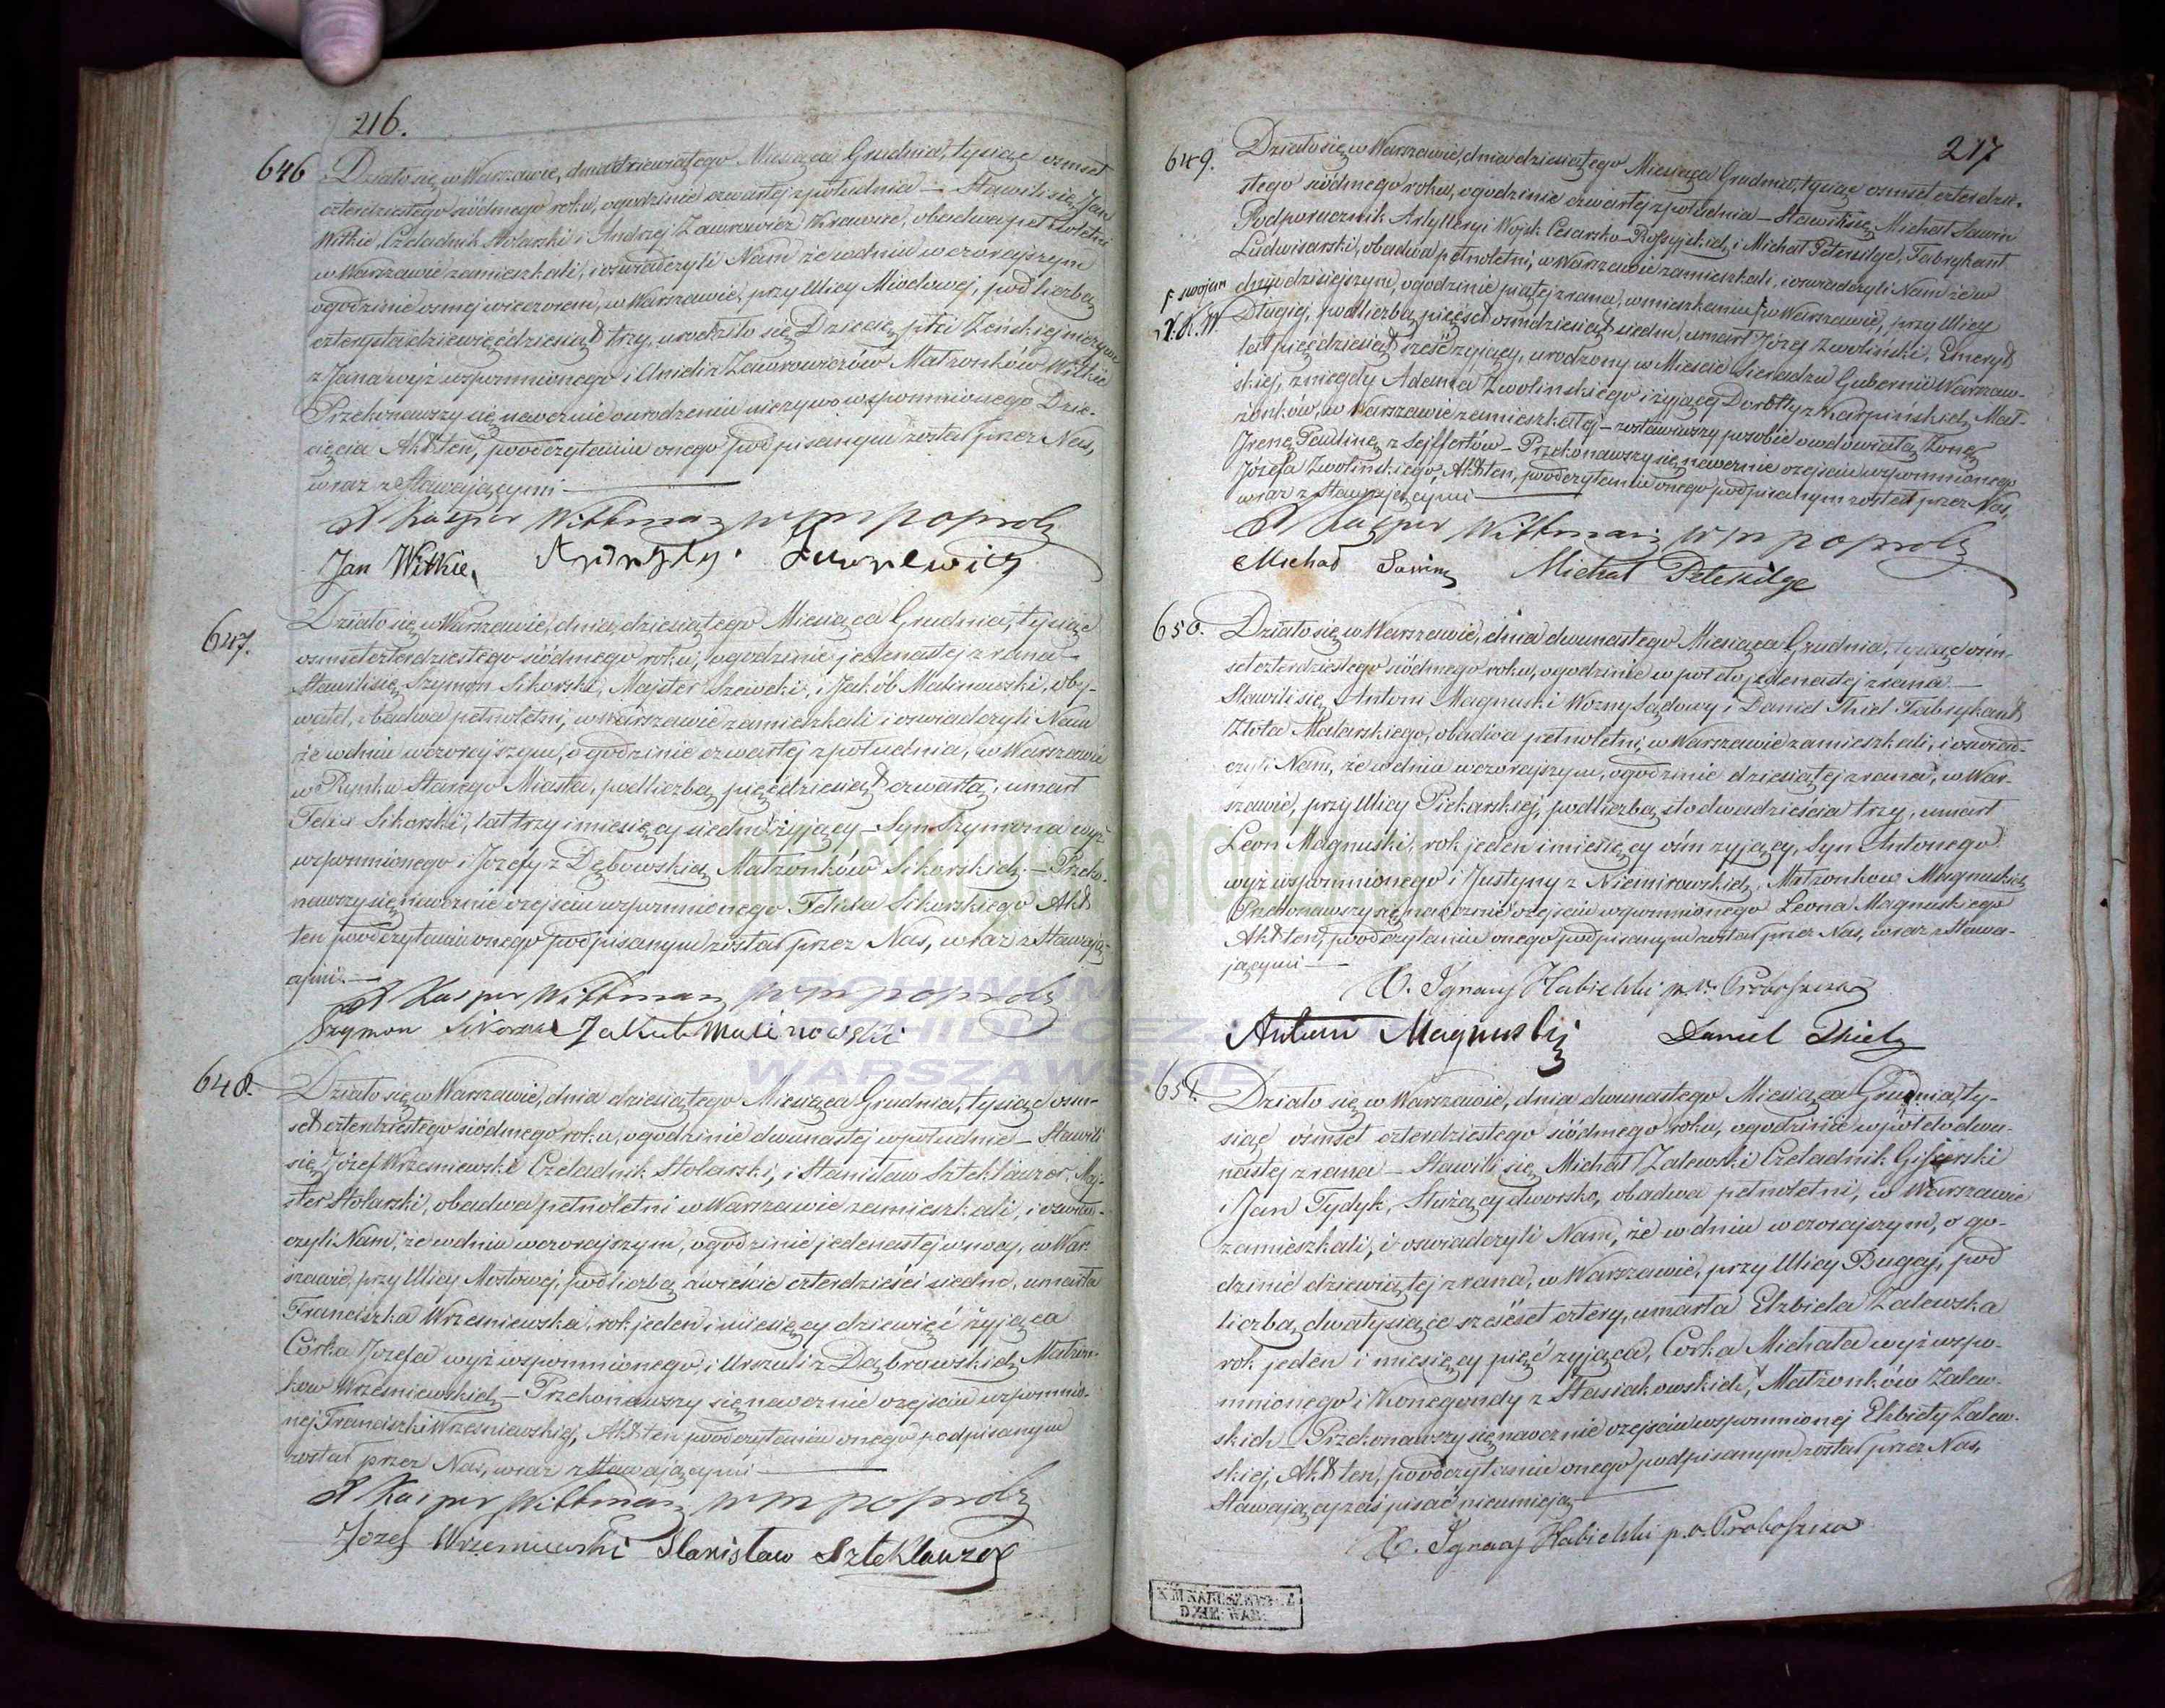 216.
646 Działo się w Warszawie, dnia dziewiątego Miesiąca Grudnia, tysiąc osmset
czterdziestego siódmego roku, o godzinie czwartej z południa – Stawili się, Jan
Witkie, Czeladnik Stolarski i Andrzej Zawrowicz Krawiec, obadwa pełnoletni
w Warszawie zamieszkali, i oswiadczyli Nam że w dniu wczorajszym
o godzinie osmej wieczorem, w Warszawie, przy Ulicy Miodowej, pod liczbą
czterysta dziewięćdziesiąt trzy, urodziło się Dziecię płci Żeńskiej nieżywe
z Jana wyż wspomnionego i Anieli z Zawrowiczów Małżonków Witkie
Przekonawszy się naocznie o urodzeniu nieżywo wspomnionego Dzie-
cięcia Akt ten, po odczytaniu onego podpisanym został przez Nas,
wraz z Stawającymi
X Kasper Wittman
Jan Witkie
647. Działo się w Warszawie, dnia dziesiątego Miesiąca Grudnia, tysiąc
osmset czterdziestego siódmego roku, o godzinie jedenastej z rana –
Stawili się, Szymon Sikorski, Majster Szewcki, i Jakób Malinowski, oby-
watel, obadwa pełnoletni, w Warszawie zamieszkali i oswiadczyli Nam
że w dniu wczorajszym, o godzinie czwartej z południa, w Warszawie
w Rynku Starego Miasta, pod liczbą pięćdziesiąt czwartą, umarł
Felix Sikorski, lat trzy i miesięcy siedm żyjący – Syn Szymona wyż
wspomnionego i Józefy z Dębowskich Małżonków Sikorskich. – Przeko-
nawszy się naocznie o zejściu wspomnionego Felixa Sikorskiego Akt
ten po odczytaniu onego podpisanym został przez Nas, wraz z Stawają-
cymi. –
X Kasper Wittman
Szymon Sikorski Jakub Malinowski
648. Działo się w Warszawie, dnia dziesiątego Miesiąca Grudnia, tysiąc osm-
set czterdziestego siódmego roku, o godzinie dwunastej w południe – Stawili
się, Józef Wrzesniewski Czeladnik Stolarski, i Stanisław Szteklauzer, Maj-
ster Stolarski, obadwa pełnoletni w Warszawie zamieszkali, i oswiad-
czyli Nam, że w dniu wczorajszym, o godzinie jedenastej w nocy, w War-
szawie, przy Ulicy Mostowej, pod liczbą dwieście czterdzieści siedm, umarła
Franciszka Wrzesniewska, rok jeden i miesięcy dziewięć żyjąca
Córka Józefa wyż wspomnionego, i Urszuli z Dąbrowskich, Małżon-
ków Wrzesniewskich – Przekonawszy się naocznie o zejściu wspomnio-
nej Franciszki Wrzesniewskiej, Akt ten po odczytaniu onego podpisanym
został przez Nas, wraz z Stawającymi
X Kasper Wittman
Jozef Wrzesniewski Stanisław Szteklauzer
217
649. Działo się w Warszawie, dnia dziesiątego Miesiąca Grudnia, tysiąc osmset czterdzie-
stego siódmego roku, o godzinie czwartej z południa – Stawili się, Michał Sawin
Podporucznik Artylleryi Wojsk Cesarsko-Rossyjskich, i Michał Petersilge, Fabrykant
Ludwisarski, obadwa pełnoletni, w Warszawie zamieszkali, i oswiadczyli Nam że w
dniu dzisiejszym, o godzinie piątej z rana, w mieszkaniu F w Warszawie, przy Ulicy
F swojem
X. K. W.
Długiej, pod liczbą pięćset osmdziesiąt siedm, umarł Józef Zwoliński, Emeryt
lat pięćdziesiąt sześć żyjący, urodzony w Mieście Sieradzu Gubernii Warszaw-
skiej, z niegdy Adama Zwolinskiego i żyjącej Doroty z Karpińskich, Mał-
żonków, w Warszawie zamieszkałej – zostawiwszy po sobie owdowiałą Żonę
Irenę Paulinę z Sejffertów – Przekonawszy się naocznie o zejściu wspomnionego
Józefa Zwolinskiego, Akt ten, po odczytaniu onego podpisanym został przez Nas,
wraz z Stawającymi
X Kasper Wittman
Michał Sawin Michał Petersilge
650. Działo się w Warszawie, dnia dwunastego Miesiąca Grudnia, tysiąc osm-
set czterdziestego siódmego roku, o godzinie w poł do jedenastej z rana. –
Stawili się, Antoni Magnuski Wozny Sądowy i Daniel Thiel Fabrykant
Złota Malarskiego, obadwa pełnoletni, w Warszawie zamieszkali, i oswiad-
czyli Nam, że w dniu wczorajszym, o godzinie dziesiątej z rana, w War-
szawie, przy Ulicy Piekarskiej, pod liczbą sto dwadzieścia trzy, umarł
Leon Magnuski, rok jeden i miesięcy ośm żyjący, Syn Antoniego
wyż wspomnionego i Justyny z Niemirowskich, Małżonków Magnuskich
Przekonawszy się naocznie o zejściu wspomnionego Leona Magnuskiego
Akt ten, po odczytaniu onego podpisanym został przez Nas, wraz z Stawa-
jącymi –
X. Ignacy Habielski p. o. Proboszcza
Antoni Magnuski Daniel Thiel
651. Działo się w Warszawie, dnia dwunastego Miesiąca Grudnia, ty-
siąc ośmset czterdziestego siódmego roku, o godzinie w poł do dwu-
nastej z rana – Stawili się, Michał Zalewski Czeladnik Gisierski
i Jan Tydyk, Służący dworski, obadwa pełnoletni, w Warszawie
zamieszkali, i oswiadczyli Nam, że w dniu wczorajszym, o go-
dzinie dziewiątej z rana, w Warszawie, przy Ulicy Bugaj, pod
liczbą dwa tysiące sześćset cztery, umarła Elżbieta Zalewska
rok jeden i miesięcy pięć żyjąca, Córka Michała wyż wspo-
mnionego i Konegondy z Stasiakowskich, Małżonków Zalew-
skich – Przekonawszy się naocznie o zejściu wspomnionej Elżbiety Zalew-
skiej, Akt ten, po odczytaniu onego podpisanym został przez Nas,
Stawający zaś pisać nieumieją
X. Ignacy Habielski p. o. Proboszcza
ARCHIWUM
ARCHIDIECEZJALNE
WARSZAWSKIE